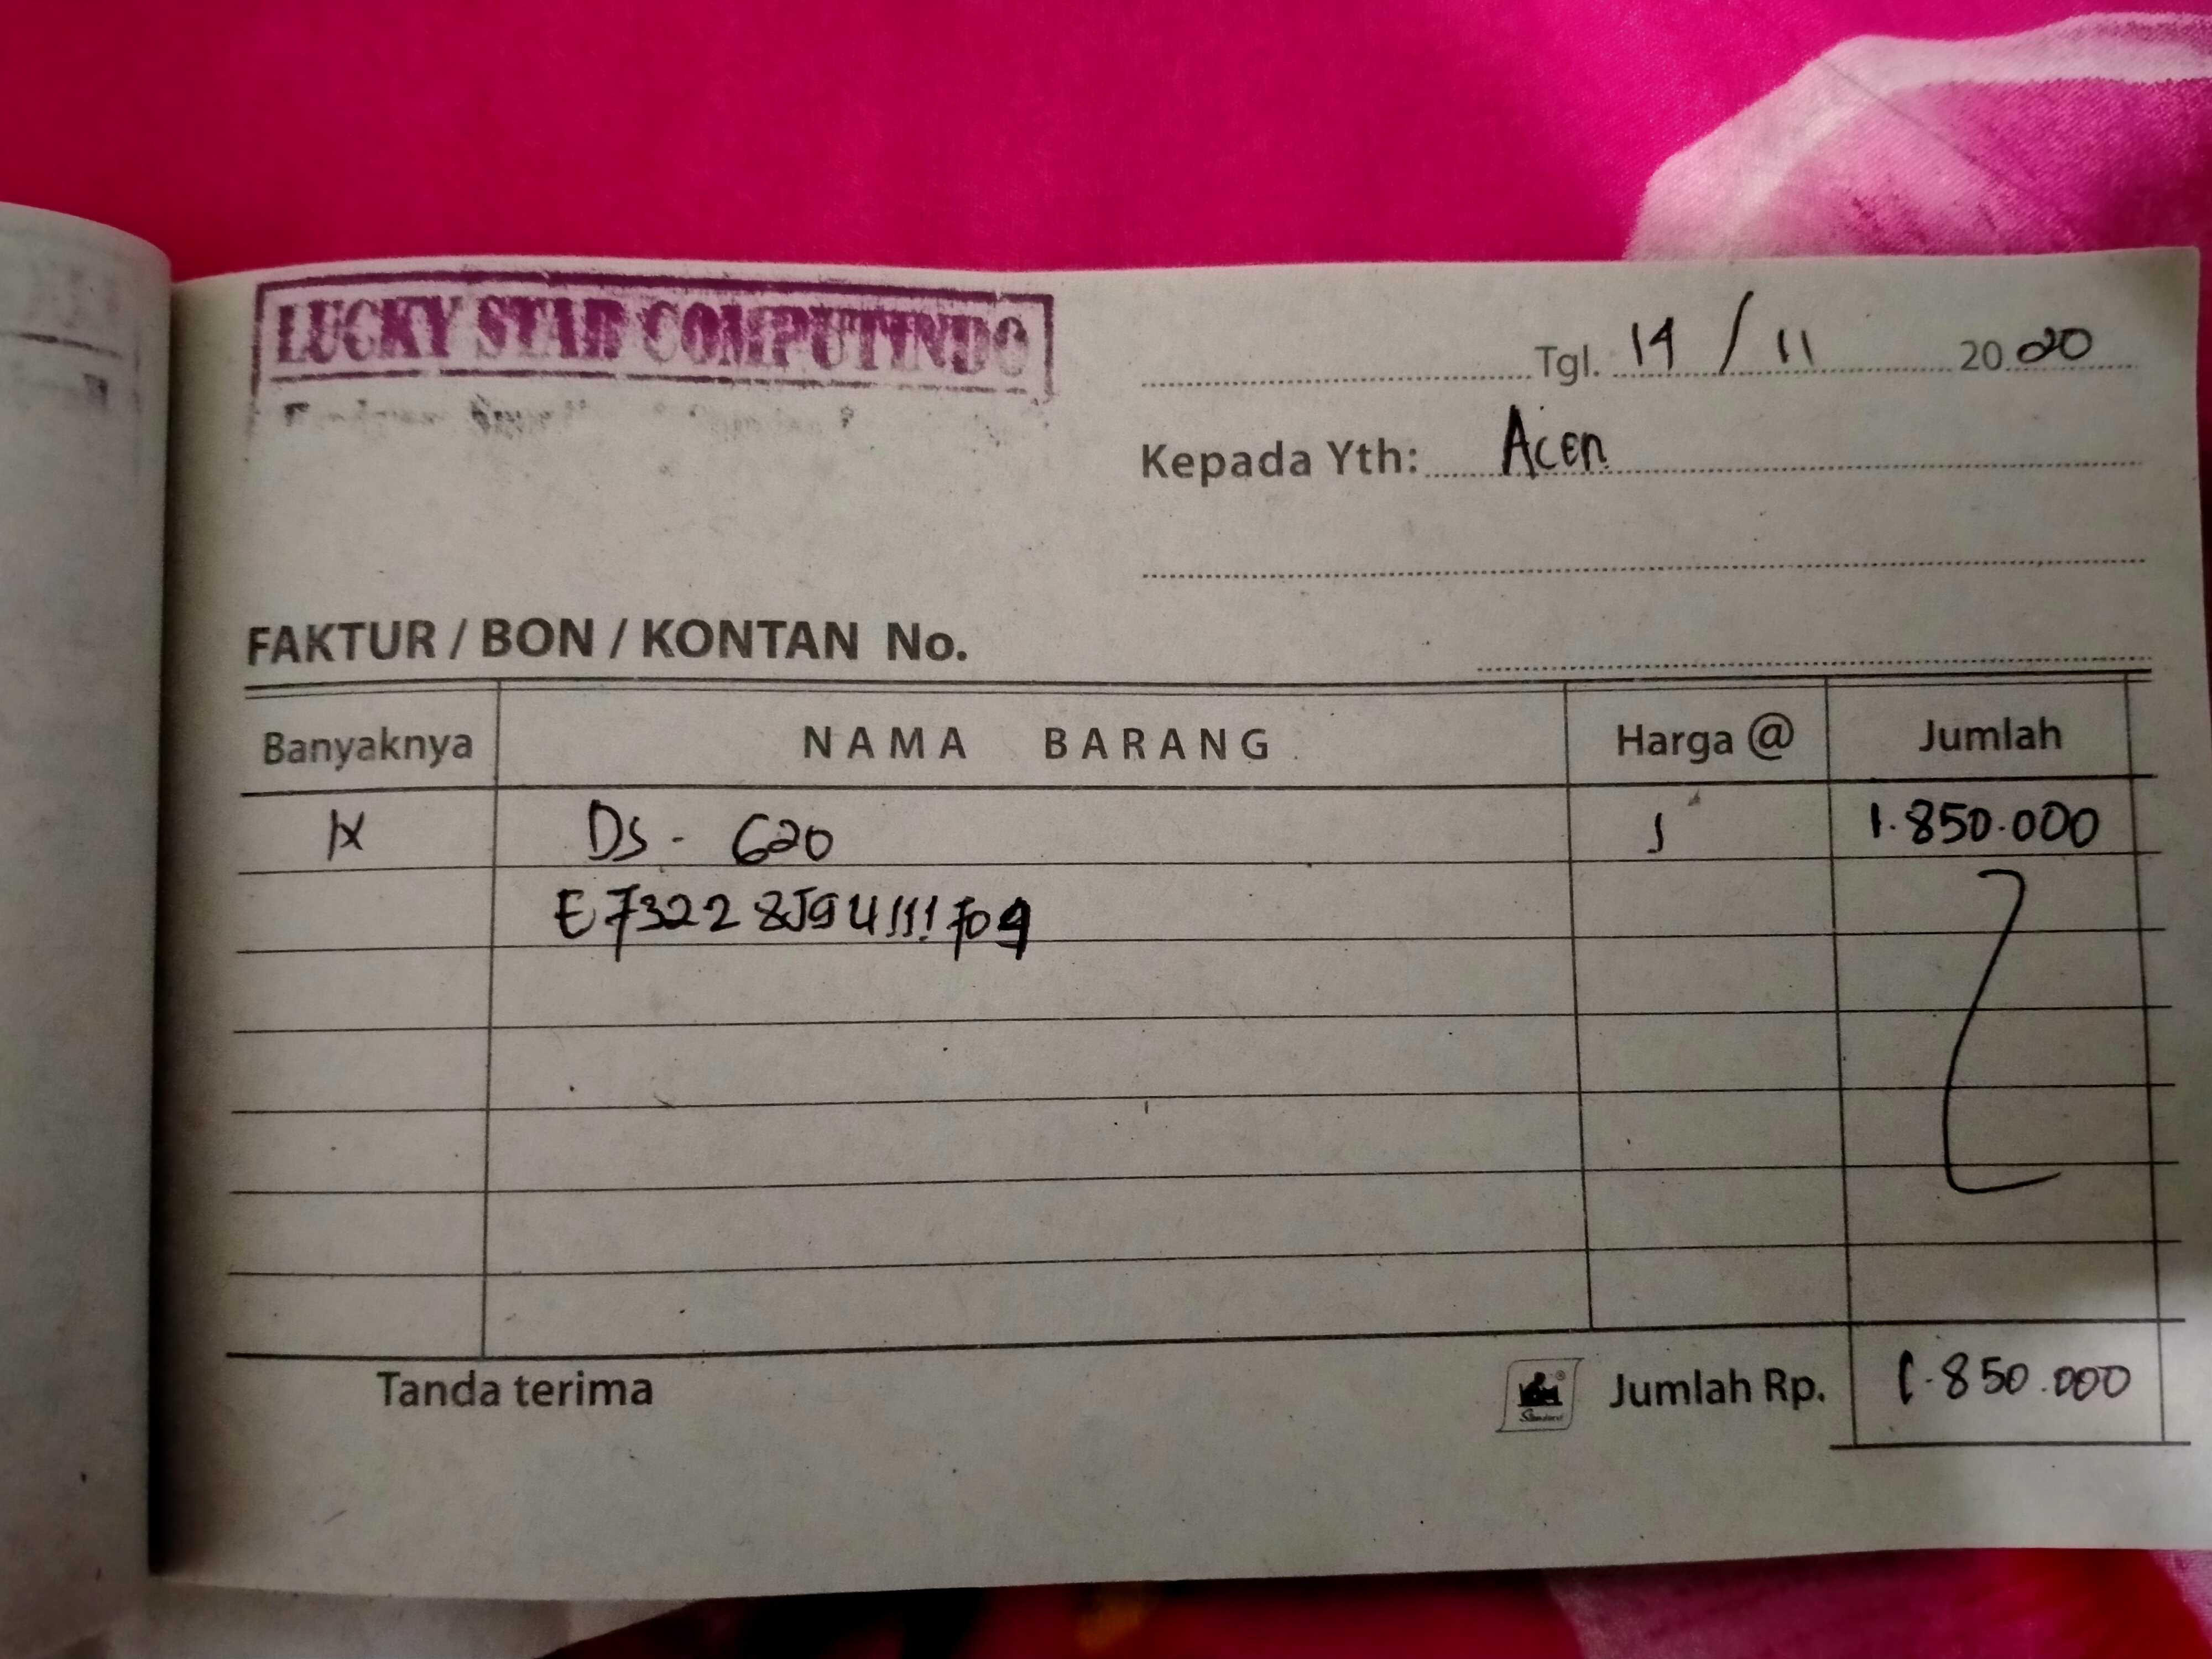 LUCKY STAR COMPUTINDO
Tgl. 14 / 11 2020
Kepada Yth: Acen
FAKTUR / BON / KONTAN No.
Banyaknya NAMA BARANG Harga @ Jumlah
1x DS - 620 1.850.000
E73228J94111709
Tanda terima Jumlah Rp. 1.850.000